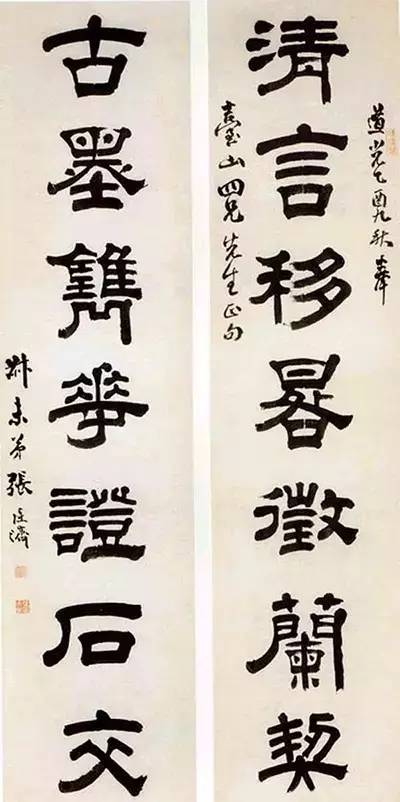 道光乙酉九秋奉
清言移晷徵蘭契
山四兄先生正句
古墨華證石交
叔未弟張廷濟